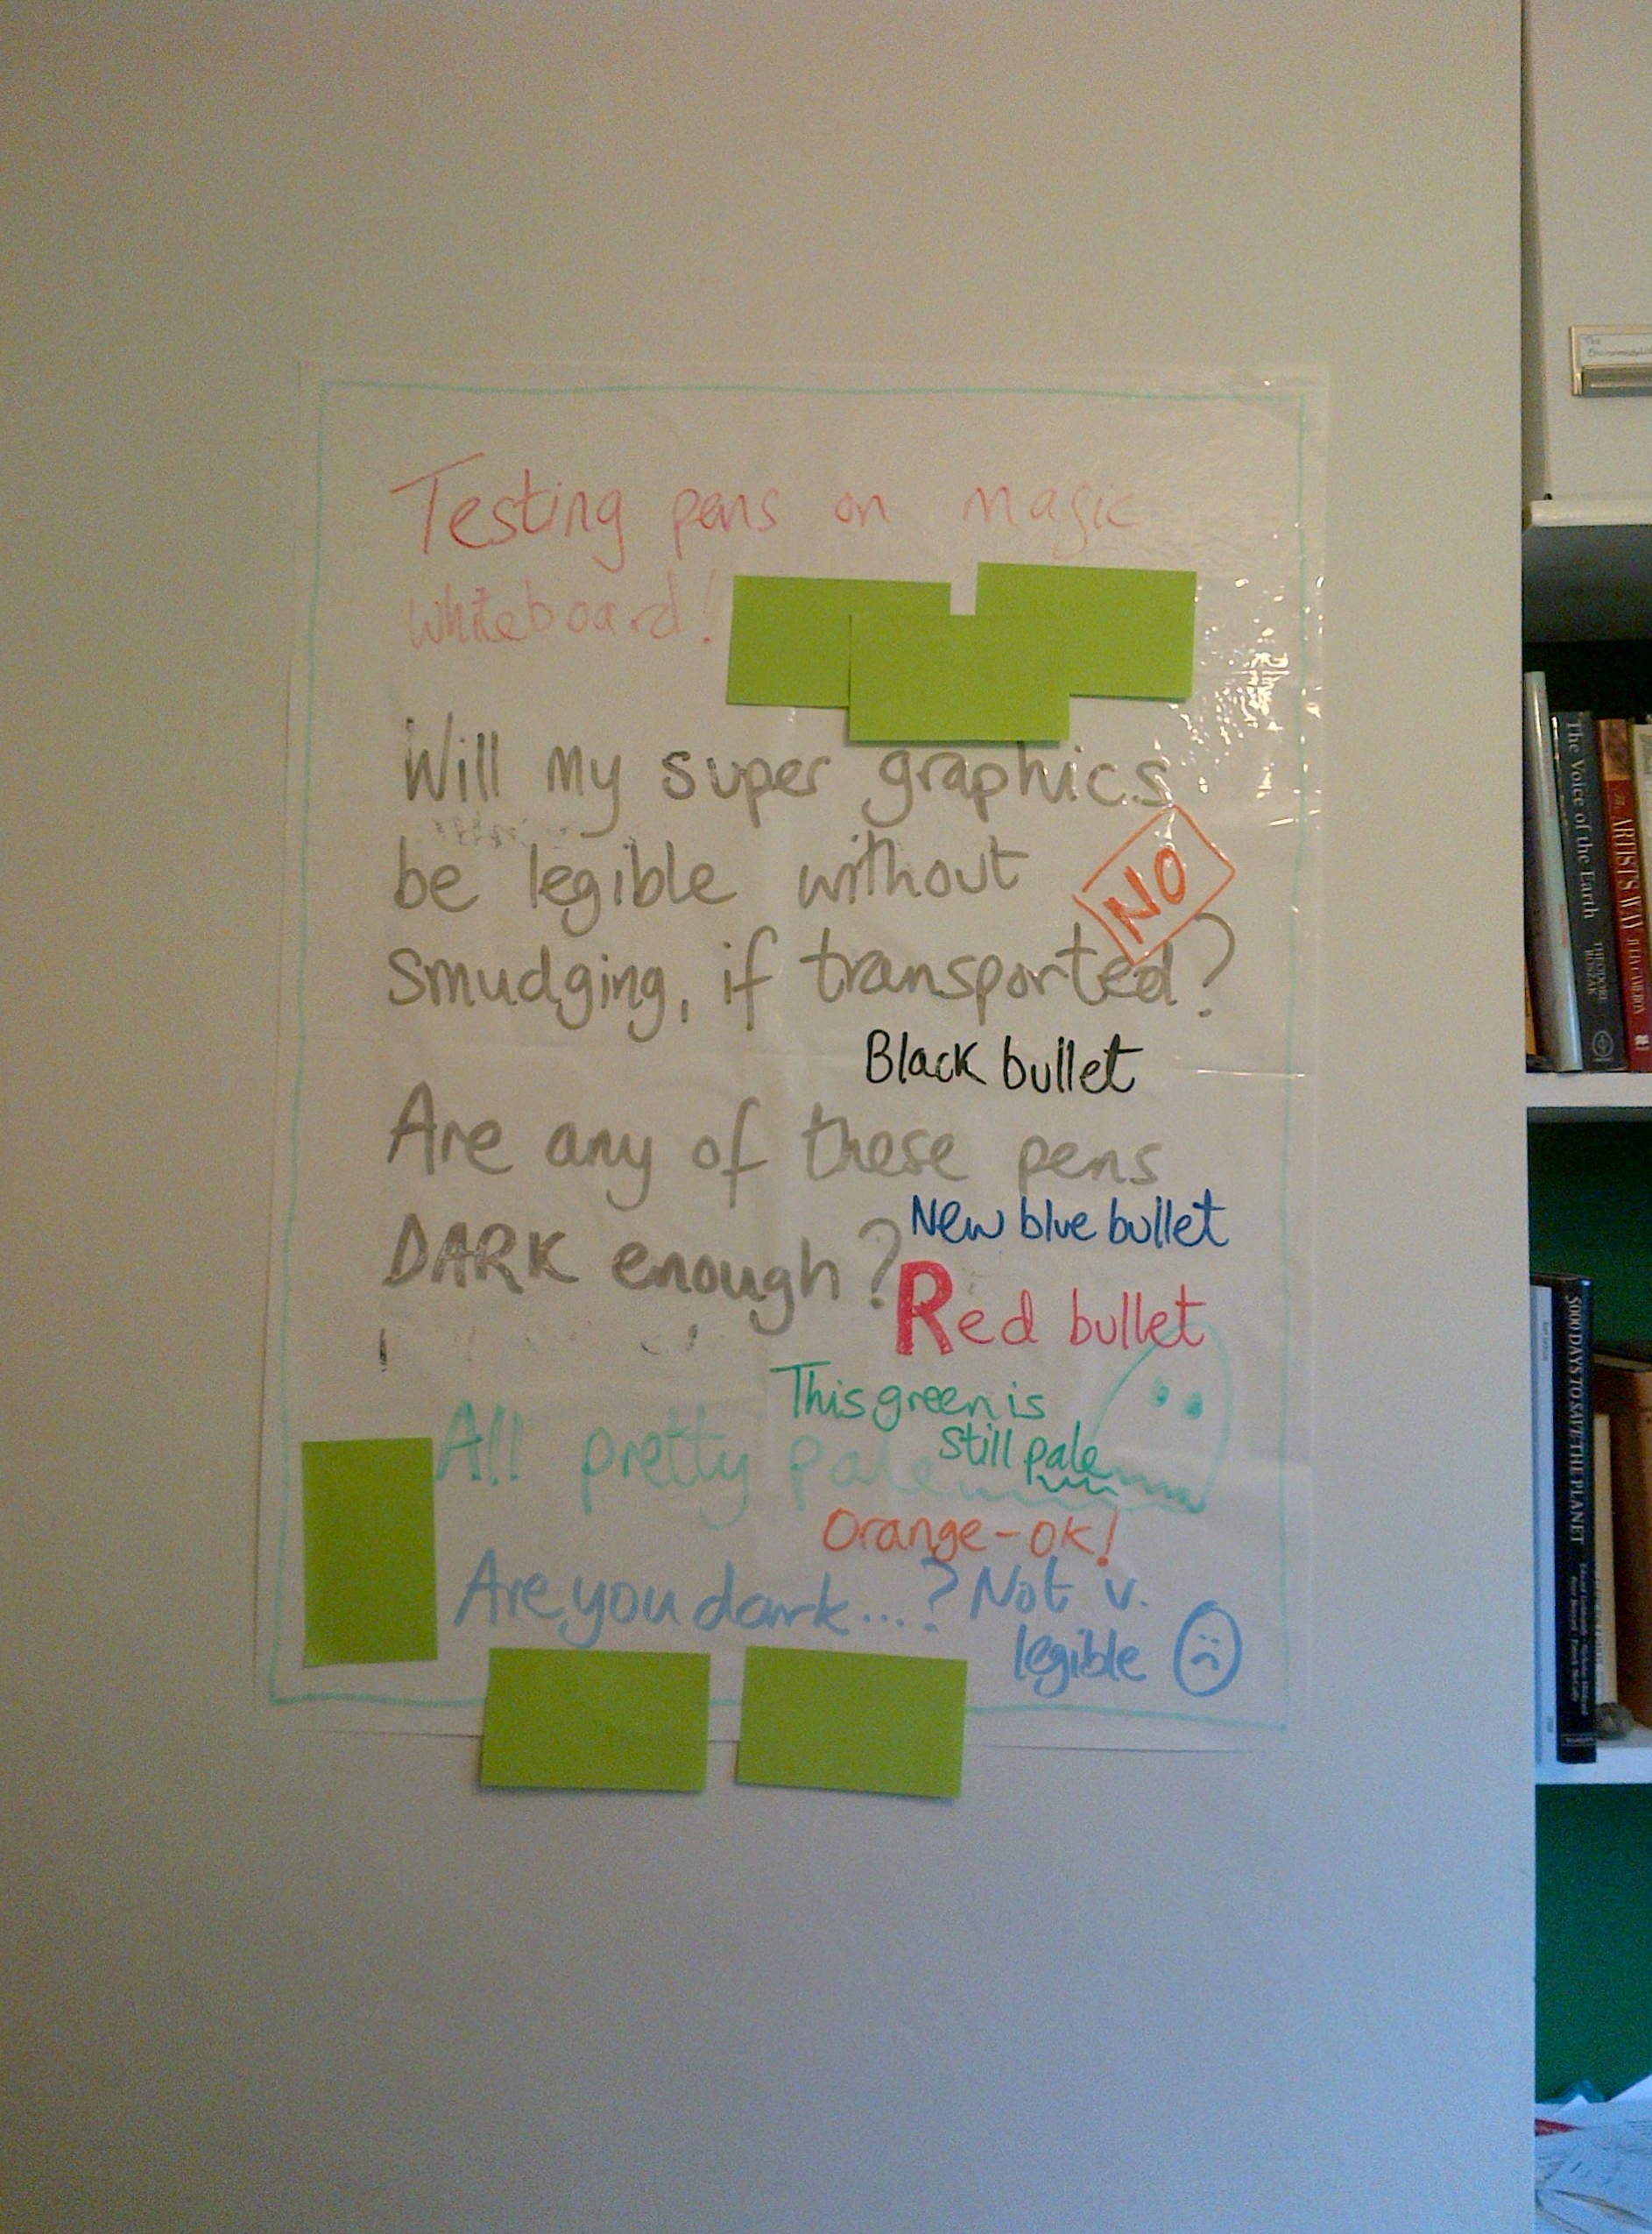 Testing pens on magic
whiteboard!
Will my super graphics
be legible without
NO
smudging, if transported?
Black bullet
Are any of these pens
New blue bullet
DARK enough?
Red bullet
This green is
still pale
All pretty pale
Orange - OK!
Are you dark...? Not v.
legible
The Voice of the Earth
THEODORE ROSZAK
The ARTIST'S WAY JULIA CAMERON
5000 DAYS TO SAVE THE PLANET